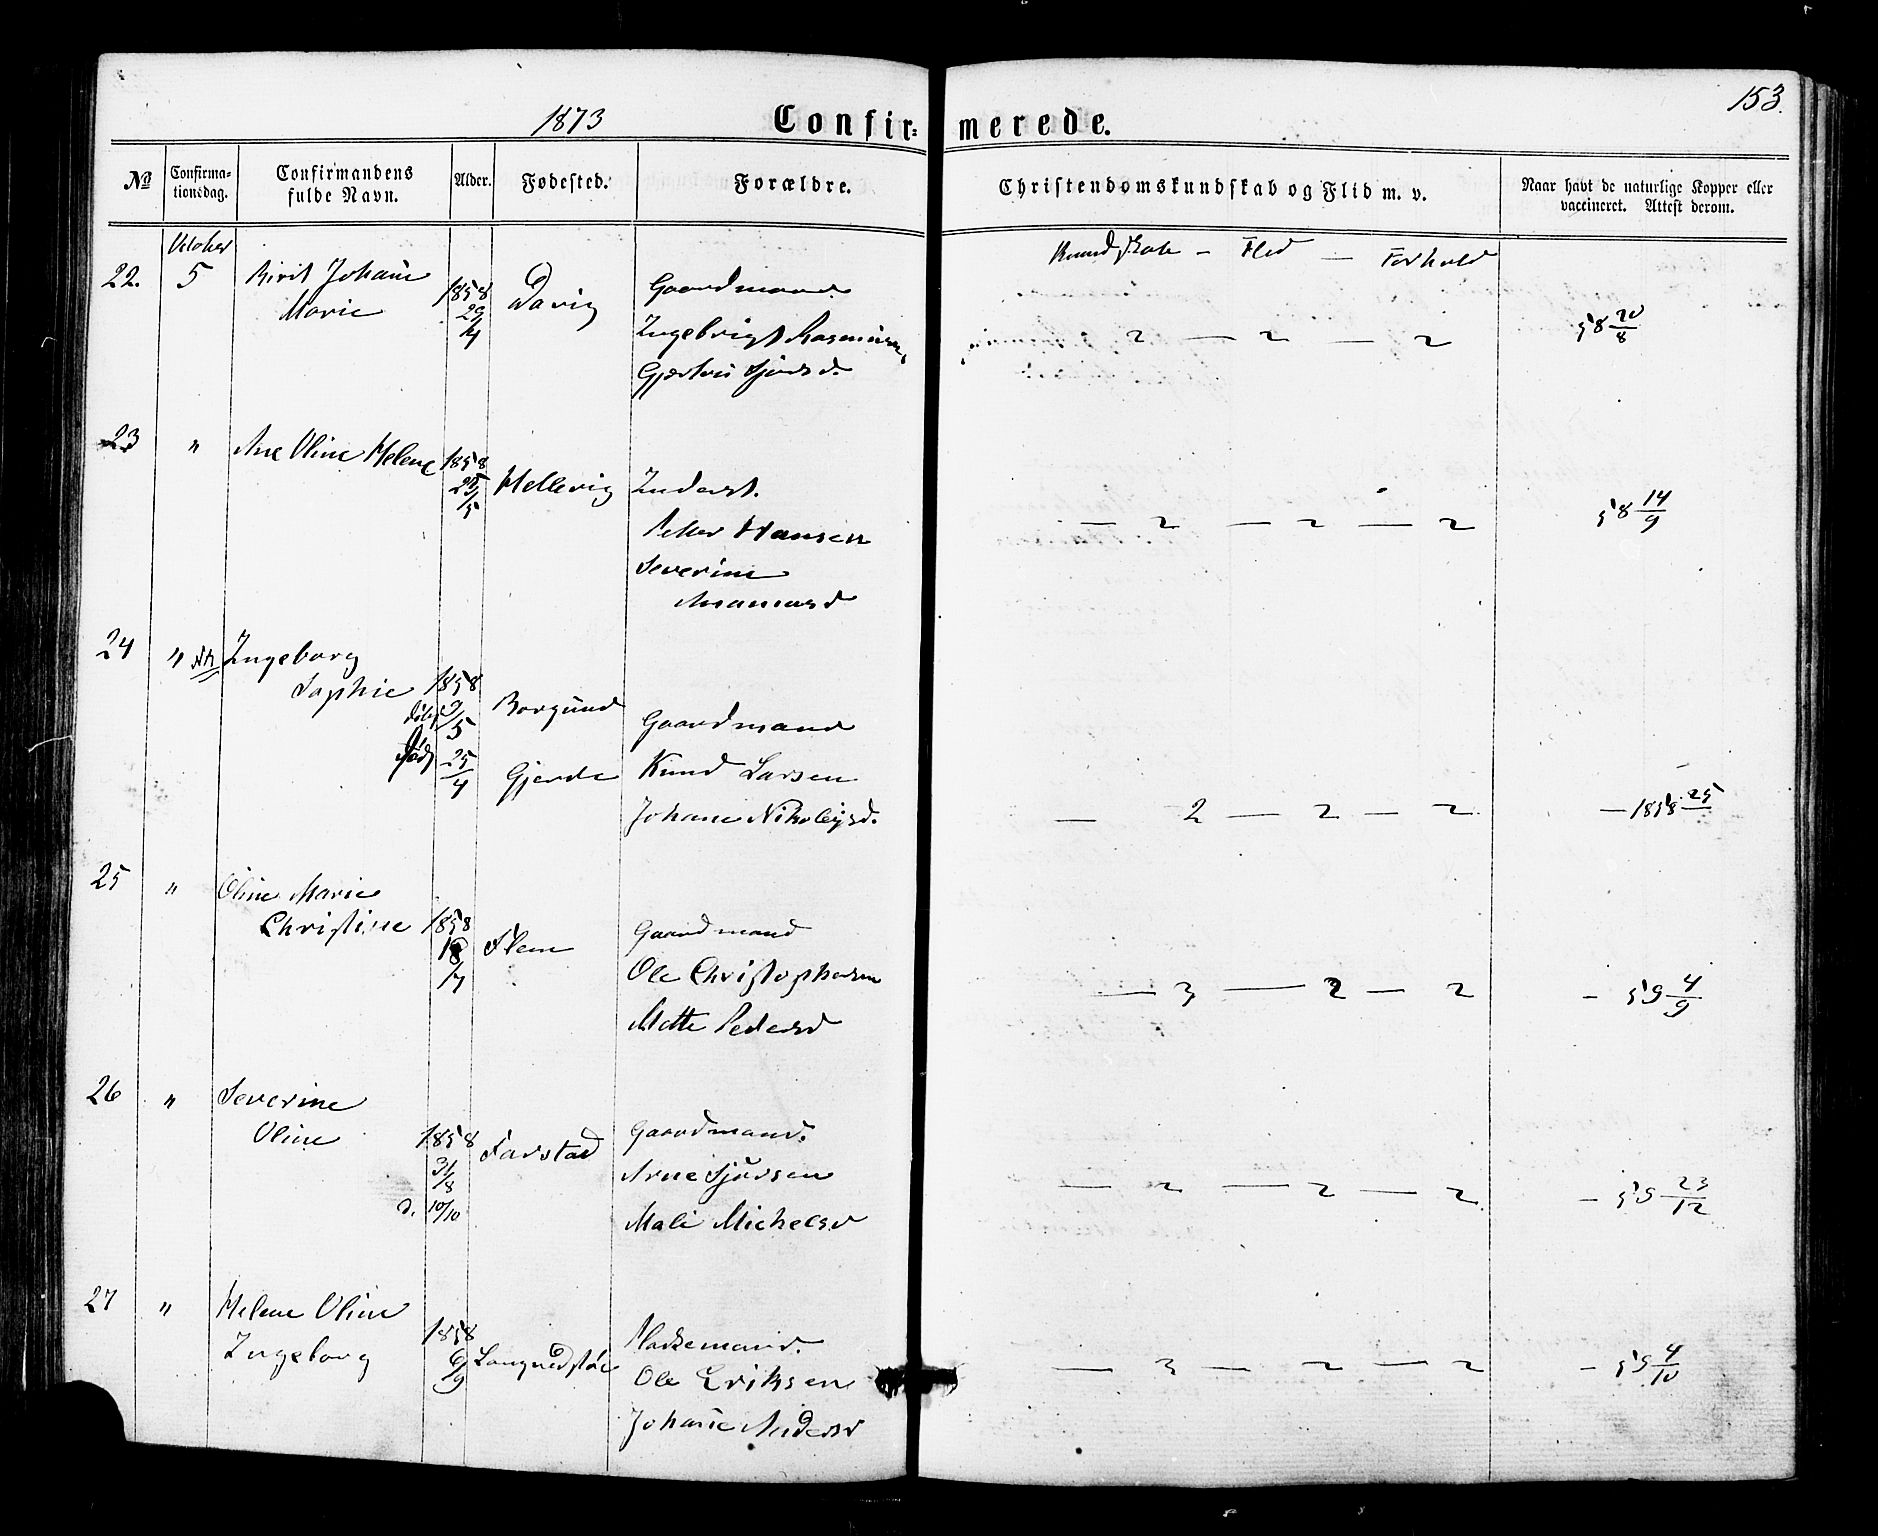 153.
1873 Confir- merede.
No Confirma-tionsdag. Confirmandens fulde Navn. Alder. Fødested. Forældre. Christendomskundskab og Flid m. v. Naar havt de naturlige Kopper eller vaccineret. Attest derom.
Kundskab - Flid - Forhold
22. 5 Birit Johane Marie 1858 29/4 Davig Gaardmand.
Ingebrigt Rasmusen,
2 — 2 — 2 58 20/8
23 " Ane Oline Helene 1858 /5 Hellevig Inderst.
Peter Hansen
Severine
— 2 — 2 — 2 58 14/9
24 " Ingeborg Sophie 1858 døbt 9/5 Borgund Gaardmand
fød 25/4 Gjerde Knud Larsen
Johane Nikolaysd.
— 2 — 2 — 2 — 1858 25
25 " Oline Marie Christine 1858 18/7 Flem Gaardmand
Ole Christophersen
Mette Pedersd
— 3 — 2 — 2 - 59 4/9
26 " Severine Oline 1858 31/8 d. 10/10 Farstad Gaardmand.
Arne Sjursen
Mali Michelsd
— 2 — 2 — 2 - 59 23/12
27 " Helene Oline Ingeborg 1858 6/9
Ole Eriksen
Johane Andersd
— 3 — 2 — 2 - 59 4/10